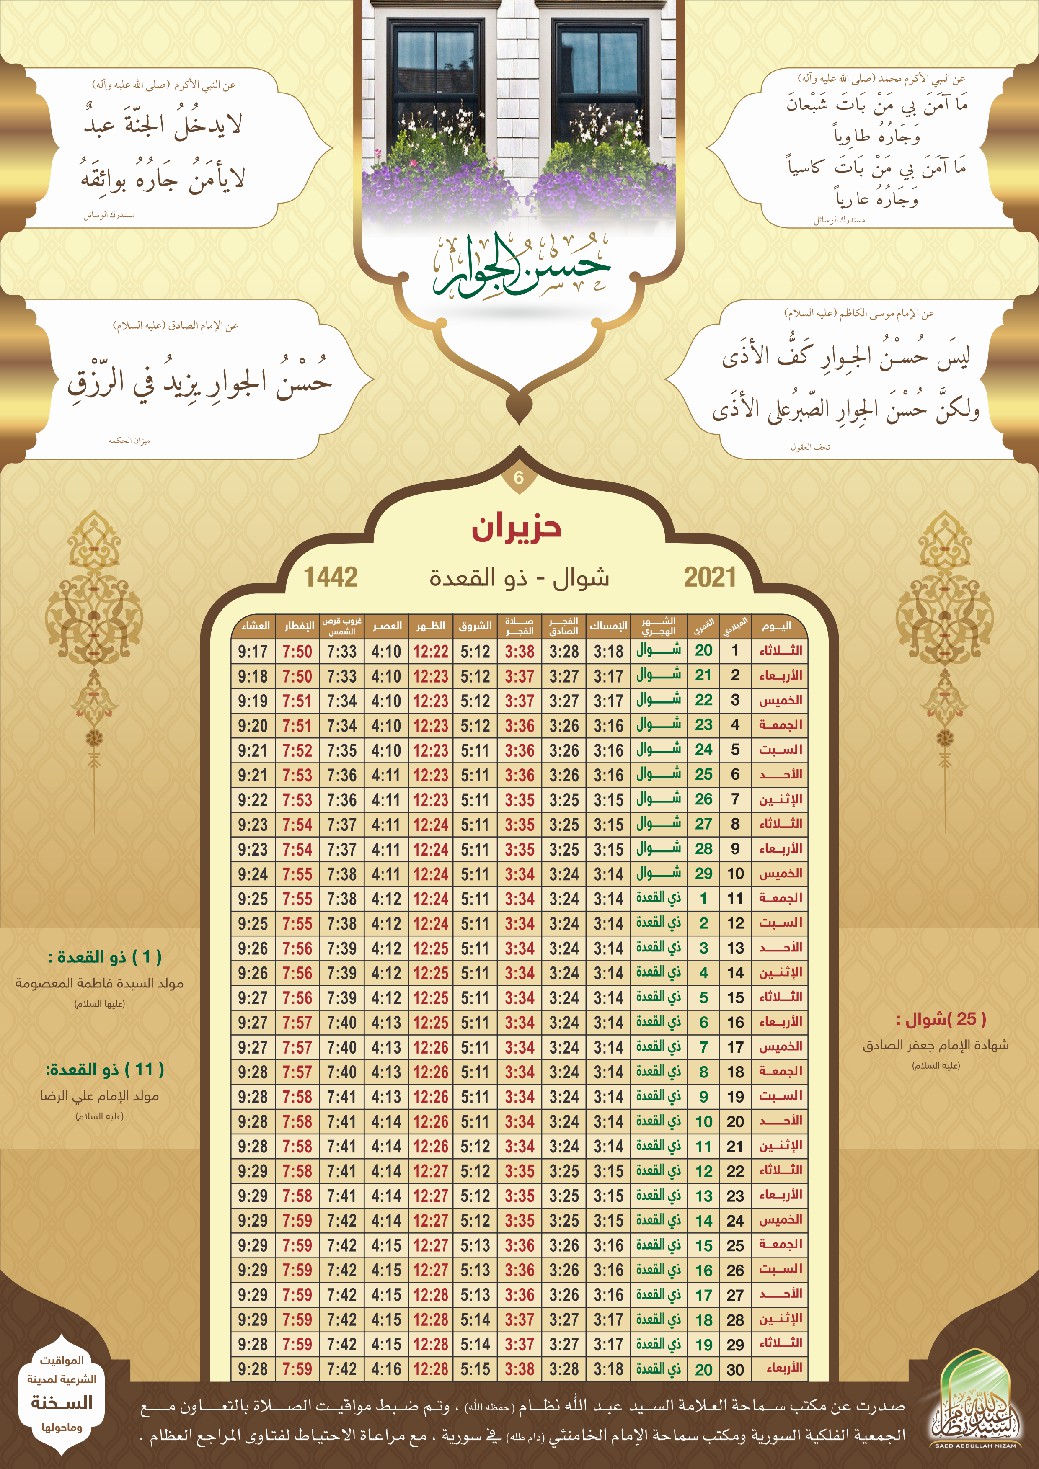 عن النبي الأكرم محمد (صلى الله عليه وآله)
مَا آمَنَ بِي مَنْ بَاتَ شَبْعانَ
وَجَارُهُ طاوِياً
مَا آمَنَ بِي مَنْ بَاتَ كاسياً
وَجَارُهُ عارِياً
مستدرك الوسائل
عن النبي الأكرم (صلى الله عليه وآله)
لايدخُلُ الجنّةَ عبدٌ
لايأمَنُ جَارُهُ بوائِقَهُ
مستدرك الوسائل
حُسنُ الجوار
عن الإمام موسى الكاظم (عليه السلام)
ليسَ حُسْنُ الجِوارِ كَفُّ الأذَى
ولكنَّ حُسْنَ الجِوارِ الصّبرُعلى الأذَى
تحف العقول
عن الإمام الصادق (عليه السلام)
حُسْنُ الجوارِ يزيدُ في الرّزْقِ
ميزان الحكمة
6
حزيران
2021 شوال - ذو القعدة 1442
اليوم الميلادي القمري الشهر الهجري الإمساك الفجر الصادق صلاة الفجر الشروق الظهر العصر غروب قرص الشمس الإفطار العشاء
الثلاثاء 1 20 شوال 3:18 3:28 3:38 5:12 12:22 4:10 7:33 7:50 9:17
الأربعاء 2 21 شوال 3:17 3:27 3:37 5:12 12:23 4:10 7:33 7:50 9:18
الخميس 3 22 شوال 3:17 3:27 3:37 5:12 12:23 4:10 7:34 7:51 9:19
الجمعة 4 23 شوال 3:16 3:26 3:36 5:12 12:23 4:10 7:34 7:51 9:20
السبت 5 24 شوال 3:16 3:26 3:36 5:11 12:23 4:10 7:35 7:52 9:21
الأحد 6 25 شوال 3:16 3:26 3:36 5:11 12:23 4:11 7:36 7:53 9:21
الإثنين 7 26 شوال 3:15 3:25 3:35 5:11 12:23 4:11 7:36 7:53 9:22
الثلاثاء 8 27 شوال 3:15 3:25 3:35 5:11 12:24 4:11 7:37 7:54 9:23
الأربعاء 9 28 شوال 3:15 3:25 3:35 5:11 12:24 4:11 7:37 7:54 9:23
الخميس 10 29 شوال 3:14 3:24 3:34 5:11 12:24 4:11 7:38 7:55 9:24
الجمعة 11 1 ذي القعدة 3:14 3:24 3:34 5:11 12:24 4:12 7:38 7:55 9:25
السبت 12 2 ذي القعدة 3:14 3:24 3:34 5:11 12:24 4:12 7:38 7:55 9:25
الأحد 13 3 ذي القعدة 3:14 3:24 3:34 5:11 12:25 4:12 7:39 7:56 9:26
الإثنين 14 4 ذي القعدة 3:14 3:24 3:34 5:11 12:25 4:12 7:39 7:56 9:26
الثلاثاء 15 5 ذي القعدة 3:14 3:24 3:34 5:11 12:25 4:12 7:39 7:56 9:27
الأربعاء 16 6 ذي القعدة 3:14 3:24 3:34 5:11 12:25 4:13 7:40 7:57 9:27
الخميس 17 7 ذي القعدة 3:14 3:24 3:34 5:11 12:26 4:13 7:40 7:57 9:27
الجمعة 18 8 ذي القعدة 3:14 3:24 3:34 5:11 12:26 4:13 7:40 7:57 9:28
السبت 19 9 ذي القعدة 3:14 3:24 3:34 5:11 12:26 4:13 7:41 7:58 9:28
الأحد 20 10 ذي القعدة 3:14 3:24 3:34 5:11 12:26 4:14 7:41 7:58 9:28
الإثنين 21 11 ذي القعدة 3:14 3:24 3:34 5:12 12:26 4:14 7:41 7:58 9:28
الثلاثاء 22 12 ذي القعدة 3:15 3:25 3:35 5:12 12:27 4:14 7:41 7:58 9:29
الأربعاء 23 13 ذي القعدة 3:15 3:25 3:35 5:12 12:27 4:14 7:41 7:58 9:29
الخميس 24 14 ذي القعدة 3:15 3:25 3:35 5:12 12:27 4:14 7:42 7:59 9:29
الجمعة 25 15 ذي القعدة 3:16 3:26 3:36 5:13 12:27 4:15 7:42 7:59 9:29
السبت 26 16 ذي القعدة 3:16 3:26 3:36 5:13 12:27 4:15 7:42 7:59 9:29
الأحد 27 17 ذي القعدة 3:16 3:26 3:36 5:13 12:28 4:15 7:42 7:59 9:29
الإثنين 28 18 ذي القعدة 3:17 3:27 3:37 5:14 12:28 4:15 7:42 7:59 9:29
الثلاثاء 29 19 ذي القعدة 3:17 3:27 3:37 5:14 12:28 4:15 7:42 7:59 9:28
الأربعاء 30 20 ذي القعدة 3:18 3:28 3:38 5:15 12:28 4:16 7:42 7:59 9:28
( 25 )شوال :
شهادة الإمام جعفر الصادق
(عليه السلام)
( 1 ) ذو القعدة :
مولد السيدة فاطمة المعصومة
(عليها السلام)
( 11 ) ذو القعدة:
مولد الإمام علي الرضا
(عليه السلام)
المواقيت
الشرعية لمدينة
السخنة
وماحولها
صدرت عن مكتب سماحة العلامة السيد عبد الله نظام (حفظه الله) ، وتم ضبط مواقيت الصلاة بالتعاون مع
الجمعية الفلكية السورية ومكتب سماحة الإمام الخامنئي (دام ظله) في سورية ، مع مراعاة الاحتياط لفتاوى المراجع العظام .
السيد عبد الله نظام
SAED ABDULLAH NIZAM